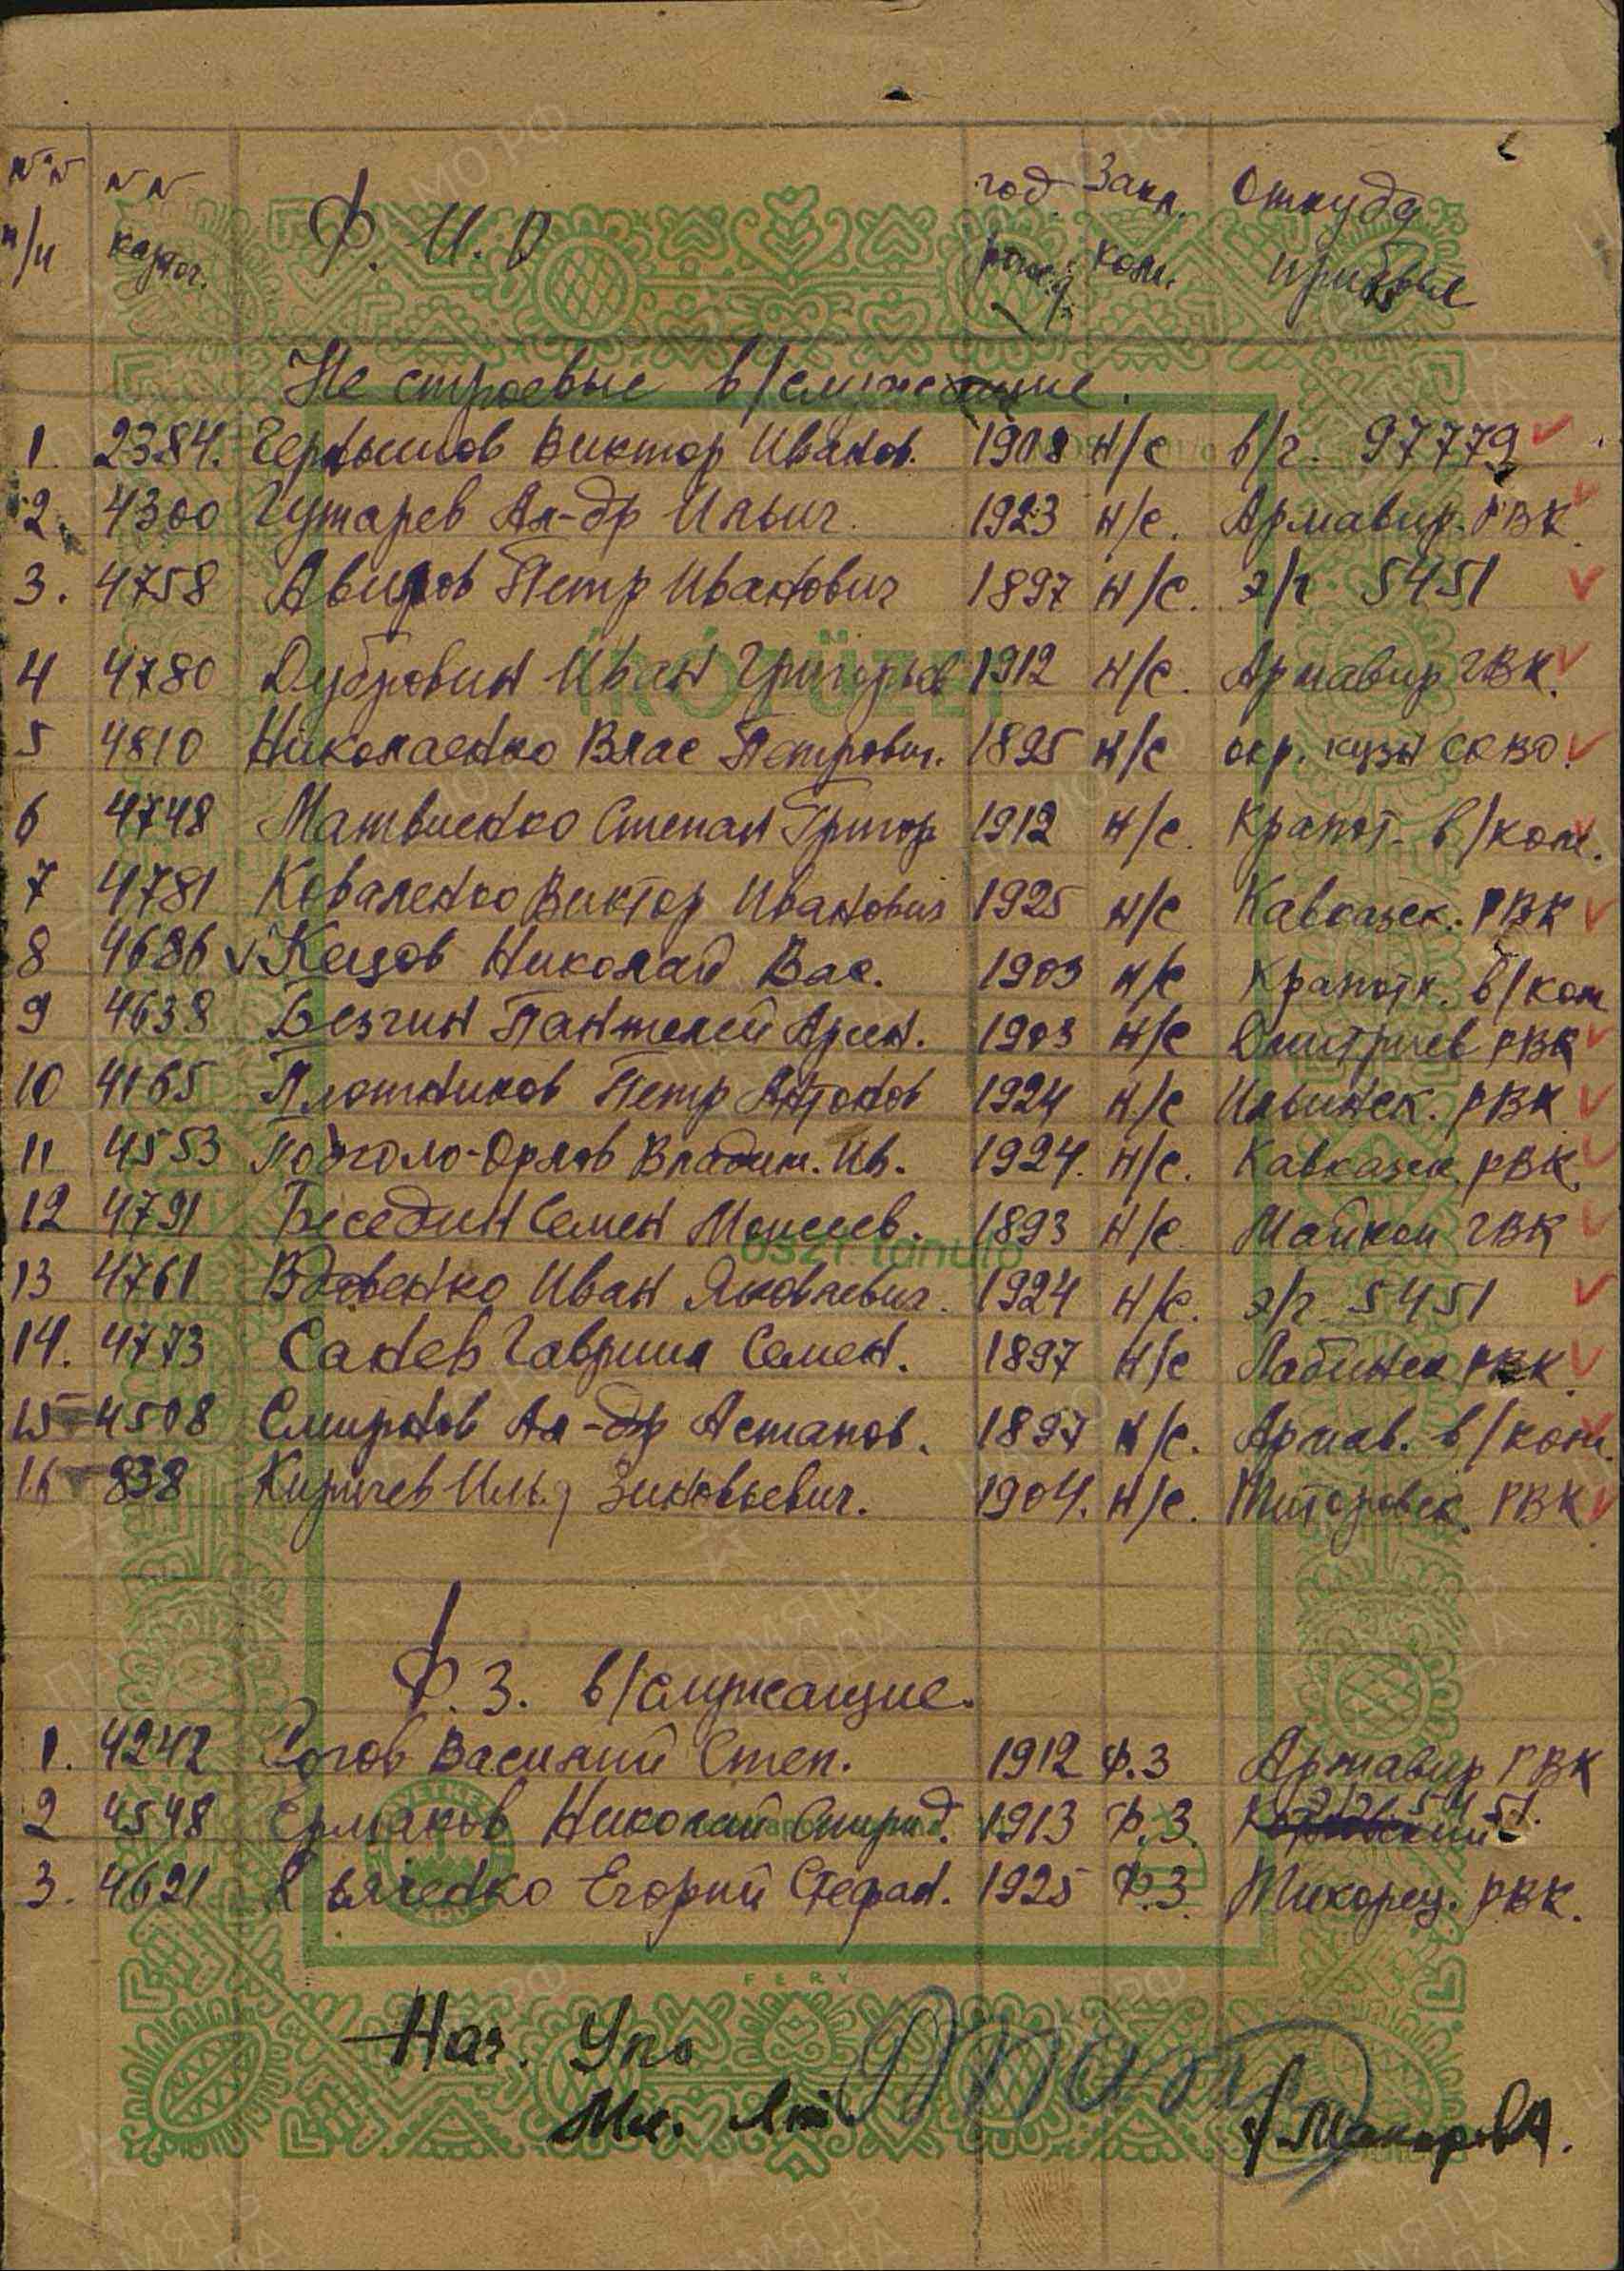 №№ №№ год. Закл. Откуда
п/п карточ. Ф. И. О рожд. ком. прибыл
Не строевые в/служащие.
1. 2384. Чернышов Виктор Иванов. 1908 н/с в/ч. 97779
2. 4300 Гутарев Ал-др Ильич. 1923 н/с. Армавир. РВК
3. 4758 Авилов Петр Иванович 1897 н/с. э/г 5451
4 4780 Дубровин Иван Григорьев 1912 н/с. Армавир ГВК.
5 4810 Николаенко Влас Петрович. 1895 н/с окр. СКВО.
6 4748 Матвиенко Степан Григор 1912 н/с. Крапот. в/ком.
7 4781 Коваленко Виктор Иванович 1925 н/с Кавказск. РВК
8 4686 Кецов Николай Вас. 1903 н/с Крапотк. в/ком
9 4638 Безгин Пантелей Арсен. 1903 н/с Дмитриев РВК
10 4165 Плотников Петр Антонов 1924 н/с Ильинск. РВК
11 4553 Орлов Владим. Ив. 1924. н/с. Кавказск. РВК
12 4791 Беседин Семен Моисеев. 1893 н/с. Майкоп ГВК
13 4761 Вдовенко Иван Яковлевич. 1924 н/с. э/г 5451
14. 4773 Санев Гаврииил Семен. 1897 н/с Лабинск РВК.
15 4508 Смирнов Ал-др Астапов. 1897 н/с. Армав. в/ком.
16 838 Киричев Иль. Зиновьевич. 1904. н/с. РВК
Ф.З. в/служащие.
1. 4242 Рогов Василий Степ. 1912 Ф.З Армавир РВК
2 4548 Ермаков Николай Спирид. 1913 Ф.З. э/г 5451.
3. 4621 Егорий Стефан. 1925 Ф.З. Тихорец. РВК.
FERY
Нач. Упо
Мл. Лт.
Макарова.
ПАМЯТЬ НАРОДА